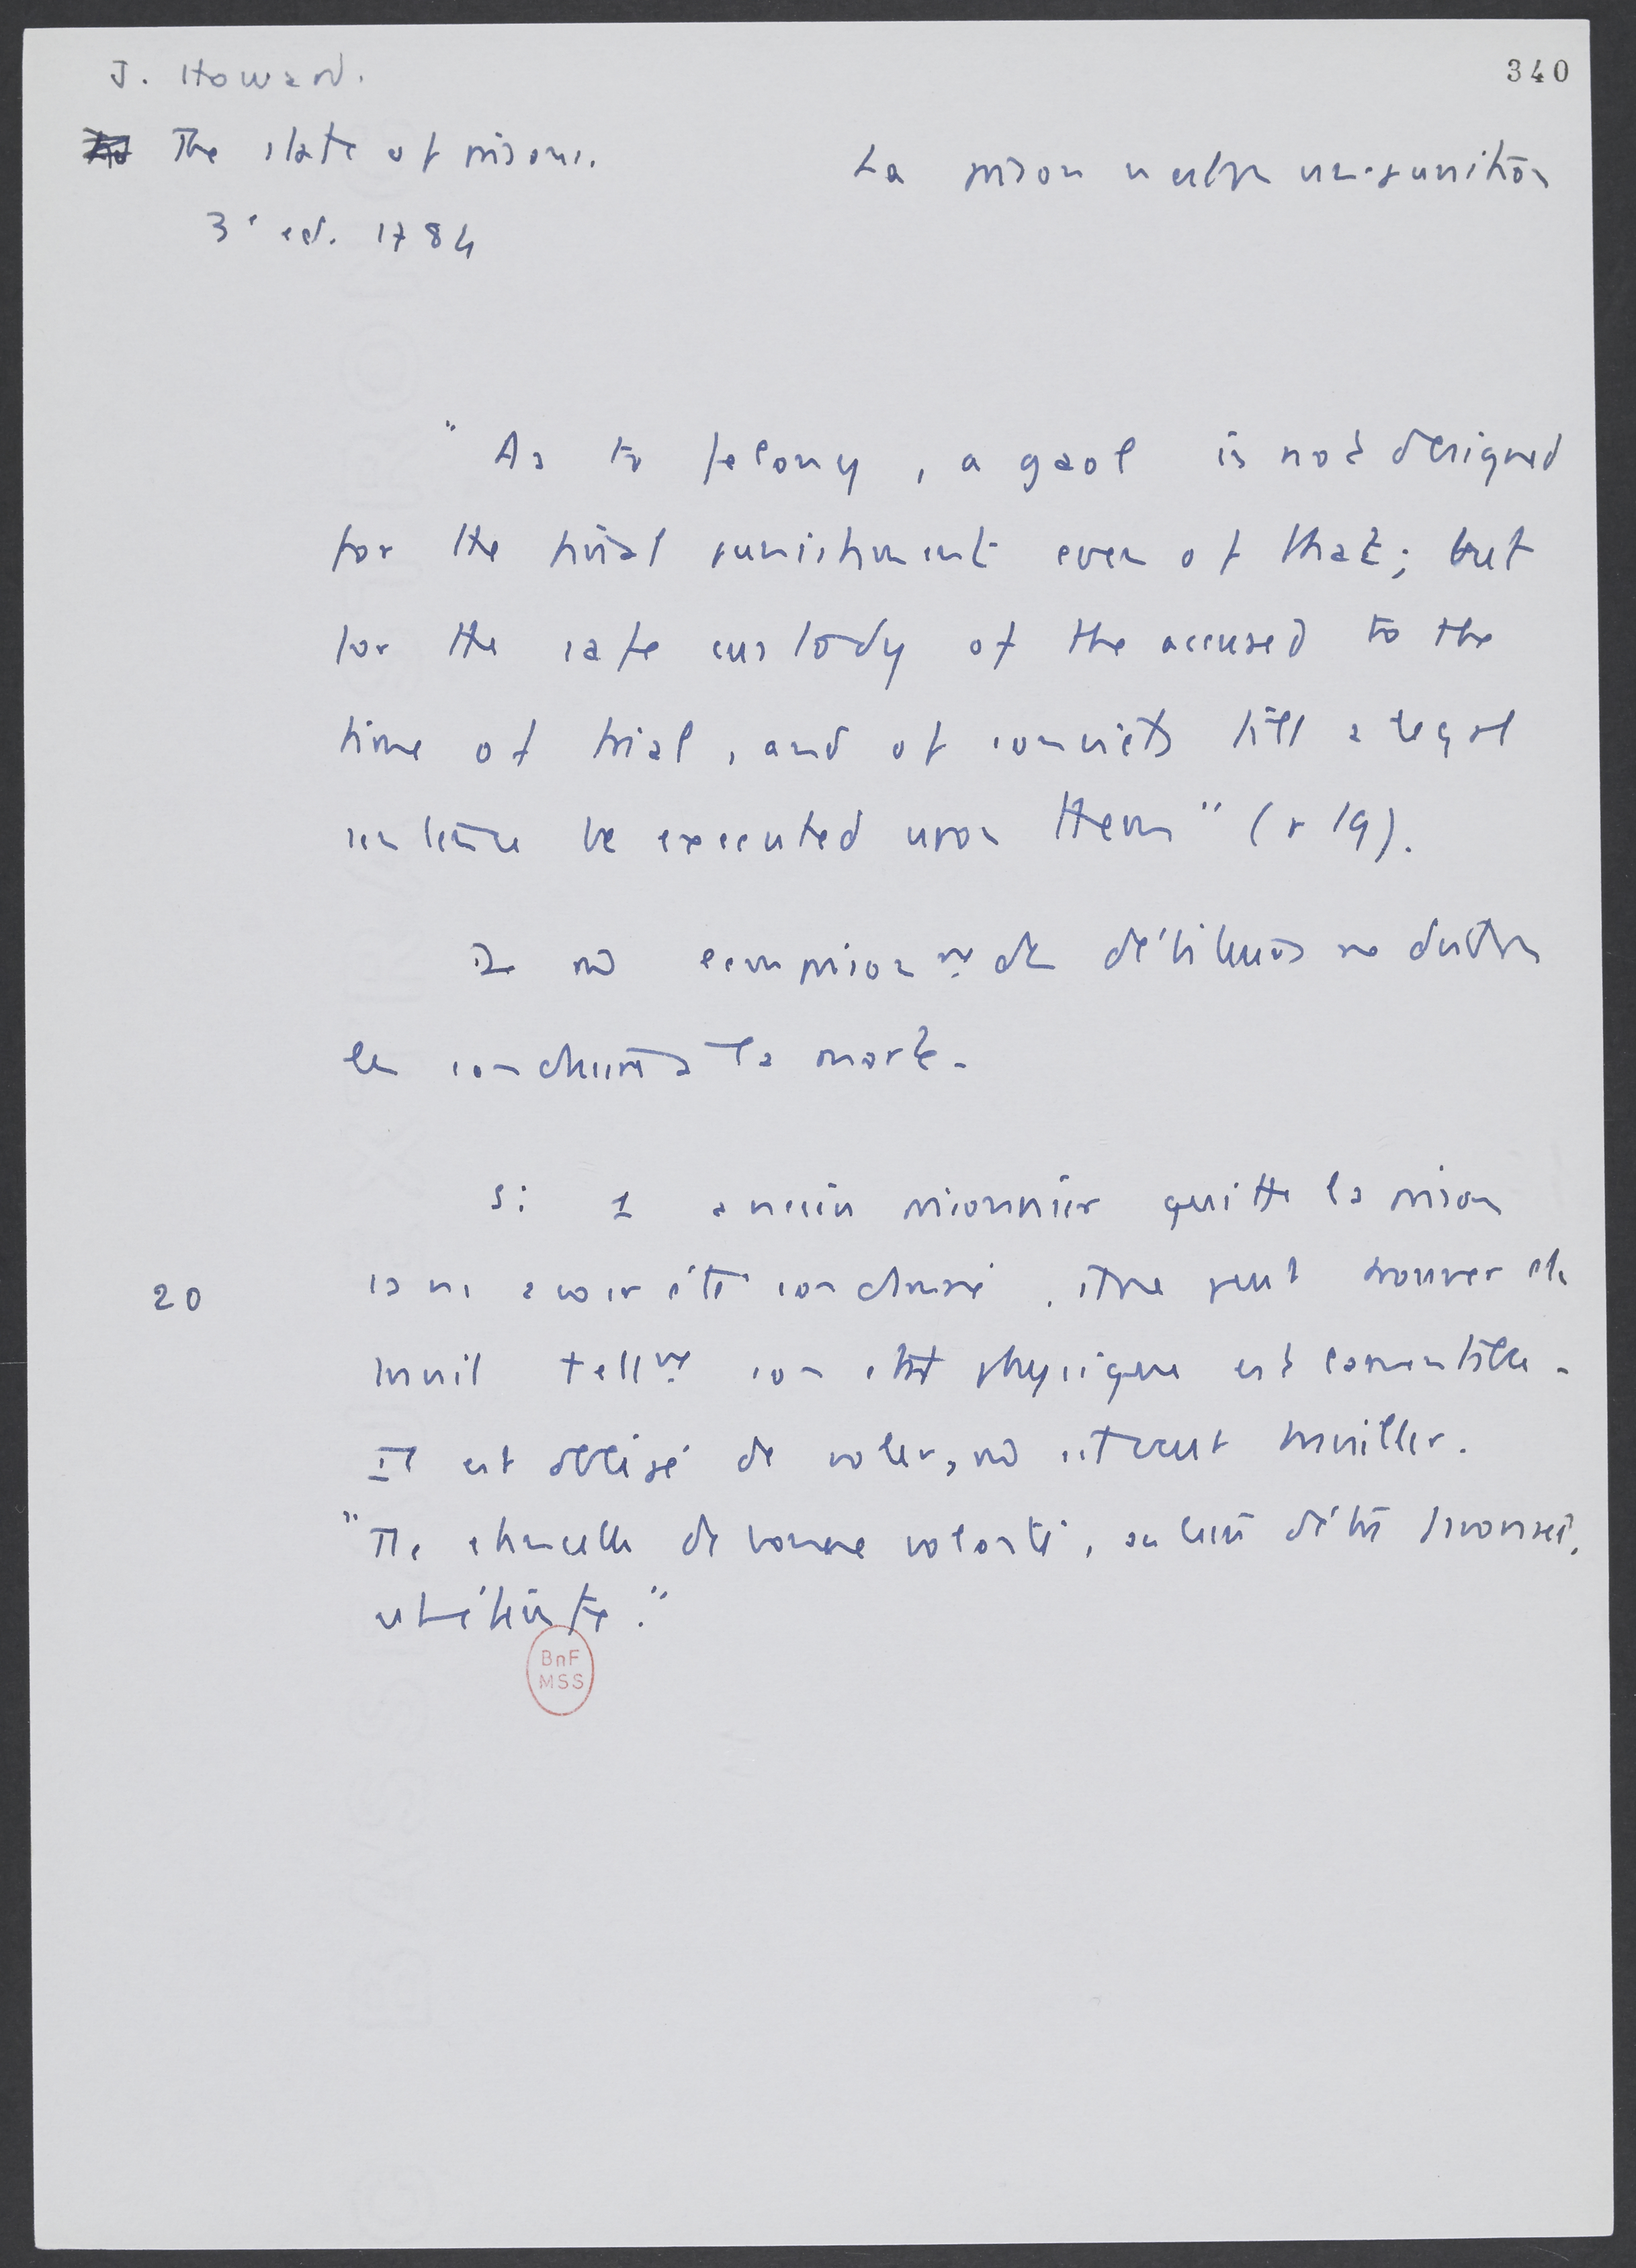 J. Howard.
340
The state of prisons.
La prison n'est pas une punition
3e ed. 1784
"As to felony, a gaol is not designed
for the final punishment even of that; but
for the safe custody of the accused to the
time of trial, and of convicts till a legal
sentence be executed upon them" (p 19).
de détenus
les condamnés à la mort.
Si 1 ancien prisonnier quitte la prison
20
sans avoir été condamné, il ne peut trouver de
travail tellmt son état physique est lamentable.
Il est obligé de voler, s'il veut travailler.
de bonne volonté,
BnF
MSS